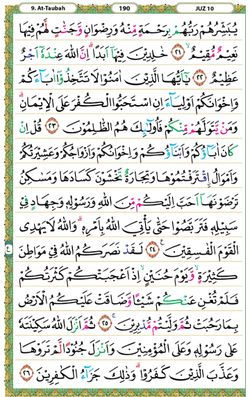 9. At-Taubah 190 JUZ 10
يُبَشِّرُهُمْ رَبُّهُمْ بِرَحْمَةٍ مِّنْهُ وَرِضْوَانٍ وَّجَنّٰتٍ لَّهُمْ فِيْهَا
نَعِيْمٌ مُّقِيْمٌ ۙ ﴿٢١﴾ خٰلِدِيْنَ فِيْهَآ اَبَدًا ۗ اِنَّ اللّٰهَ عِنْدَهٗٓ اَجْرٌ
عَظِيْمٌ ﴿٢٢﴾ يٰٓاَيُّهَا الَّذِيْنَ اٰمَنُوْا لَا تَتَّخِذُوْٓا اٰبَاۤءَكُمْ
وَاِخْوَانَكُمْ اَوْلِيَاۤءَ اِنِ اسْتَحَبُّوا الْكُفْرَ عَلَى الْاِيْمَانِ ۗ
وَمَنْ يَّتَوَلَّهُمْ مِّنْكُمْ فَاُولٰۤىِٕكَ هُمُ الظّٰلِمُوْنَ ﴿٢٣﴾ قُلْ اِنْ
كَانَ اٰبَاۤؤُكُمْ وَاَبْنَاۤؤُكُمْ وَاِخْوَانُكُمْ وَاَزْوَاجُكُمْ وَعَشِيْرَتُكُمْ
وَاَمْوَالُ ۨاقْتَرَفْتُمُوْهَا وَتِجَارَةٌ تَخْشَوْنَ كَسَادَهَا وَمَسٰكِنُ
تَرْضَوْنَهَآ اَحَبَّ اِلَيْكُمْ مِّنَ اللّٰهِ وَرَسُوْلِهٖ وَجِهَادٍ فِيْ
سَبِيْلِهٖ فَتَرَبَّصُوْا حَتّٰى يَأْتِيَ اللّٰهُ بِاَمْرِهٖ ۗ وَاللّٰهُ لَا يَهْدِى
الْقَوْمَ الْفٰسِقِيْنَ ﴿٢٤﴾ لَقَدْ نَصَرَكُمُ اللّٰهُ فِيْ مَوَاطِنَ
كَثِيْرَةٍ ۙ وَّيَوْمَ حُنَيْنٍ ۙ اِذْ اَعْجَبَتْكُمْ كَثْرَتُكُمْ
فَلَمْ تُغْنِ عَنْكُمْ شَيْـًٔا وَّضَاقَتْ عَلَيْكُمُ الْاَرْضُ
بِمَا رَحُبَتْ ثُمَّ وَلَّيْتُمْ مُّدْبِرِيْنَ ۚ ﴿٢٥﴾ ثُمَّ اَنْزَلَ اللّٰهُ سَكِيْنَتَهٗ
عَلٰى رَسُوْلِهٖ وَعَلَى الْمُؤْمِنِيْنَ وَاَنْزَلَ جُنُوْدًا لَّمْ تَرَوْهَا
وَعَذَّبَ الَّذِيْنَ كَفَرُوْا ۗ وَذٰلِكَ جَزَاۤءُ الْكٰفِرِيْنَ ﴿٢٦﴾